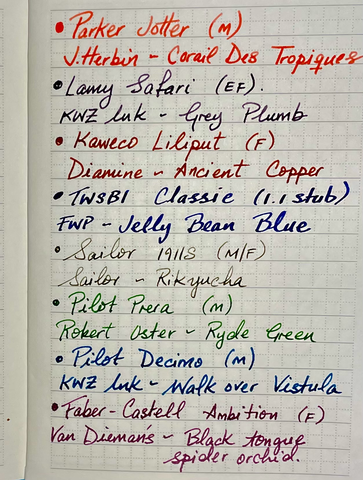 • Parker Jotter (M)
J.Herbin - Corail Des Tropiques
• Lamy Safari (EF).
KWZ Ink - Grey Plumb
• Kaweco Liliput (F)
Diamine - Ancient Copper
• TWSBI Classic (1.1 stub)
FWP - Jelly Bean Blue
• Sailor 1911S (M/F)
Sailor - Rikyucha
• Pilot Prera (M)
Robert Oster - Ryde Green
• Pilot Decimo (M)
KWZ Ink - Walk over Vistula
• Faber-Castell Ambition (F)
Van Dieman's - Black tongue
spider orchid.